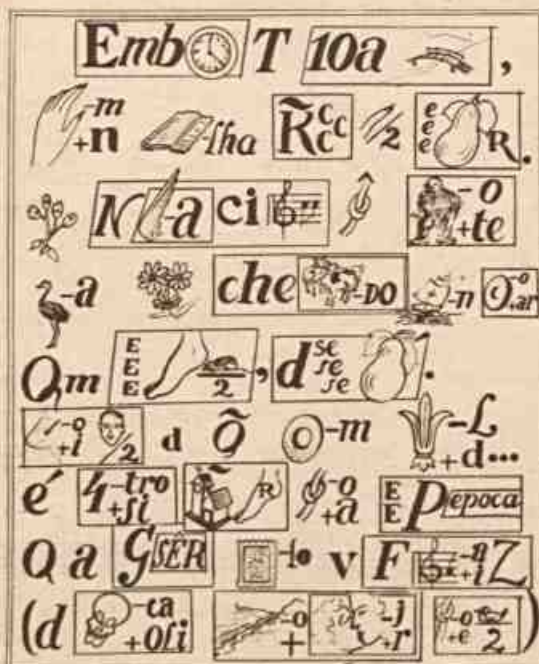 Emb T 10a ,
-m +n -lha R̃ c c c 2 e e e R .
N -a ci -o +te
-a che -DO -n -o +ar
Qm E E E 2 , d se se se .
-o +i 2 d Q̃ -m -L +d...
é 4 -tro +si R -o +a E E P epoca
Q a G SÊR v F +i Z
(d -ca +Ofi -o + -j +r -o +e 2 )